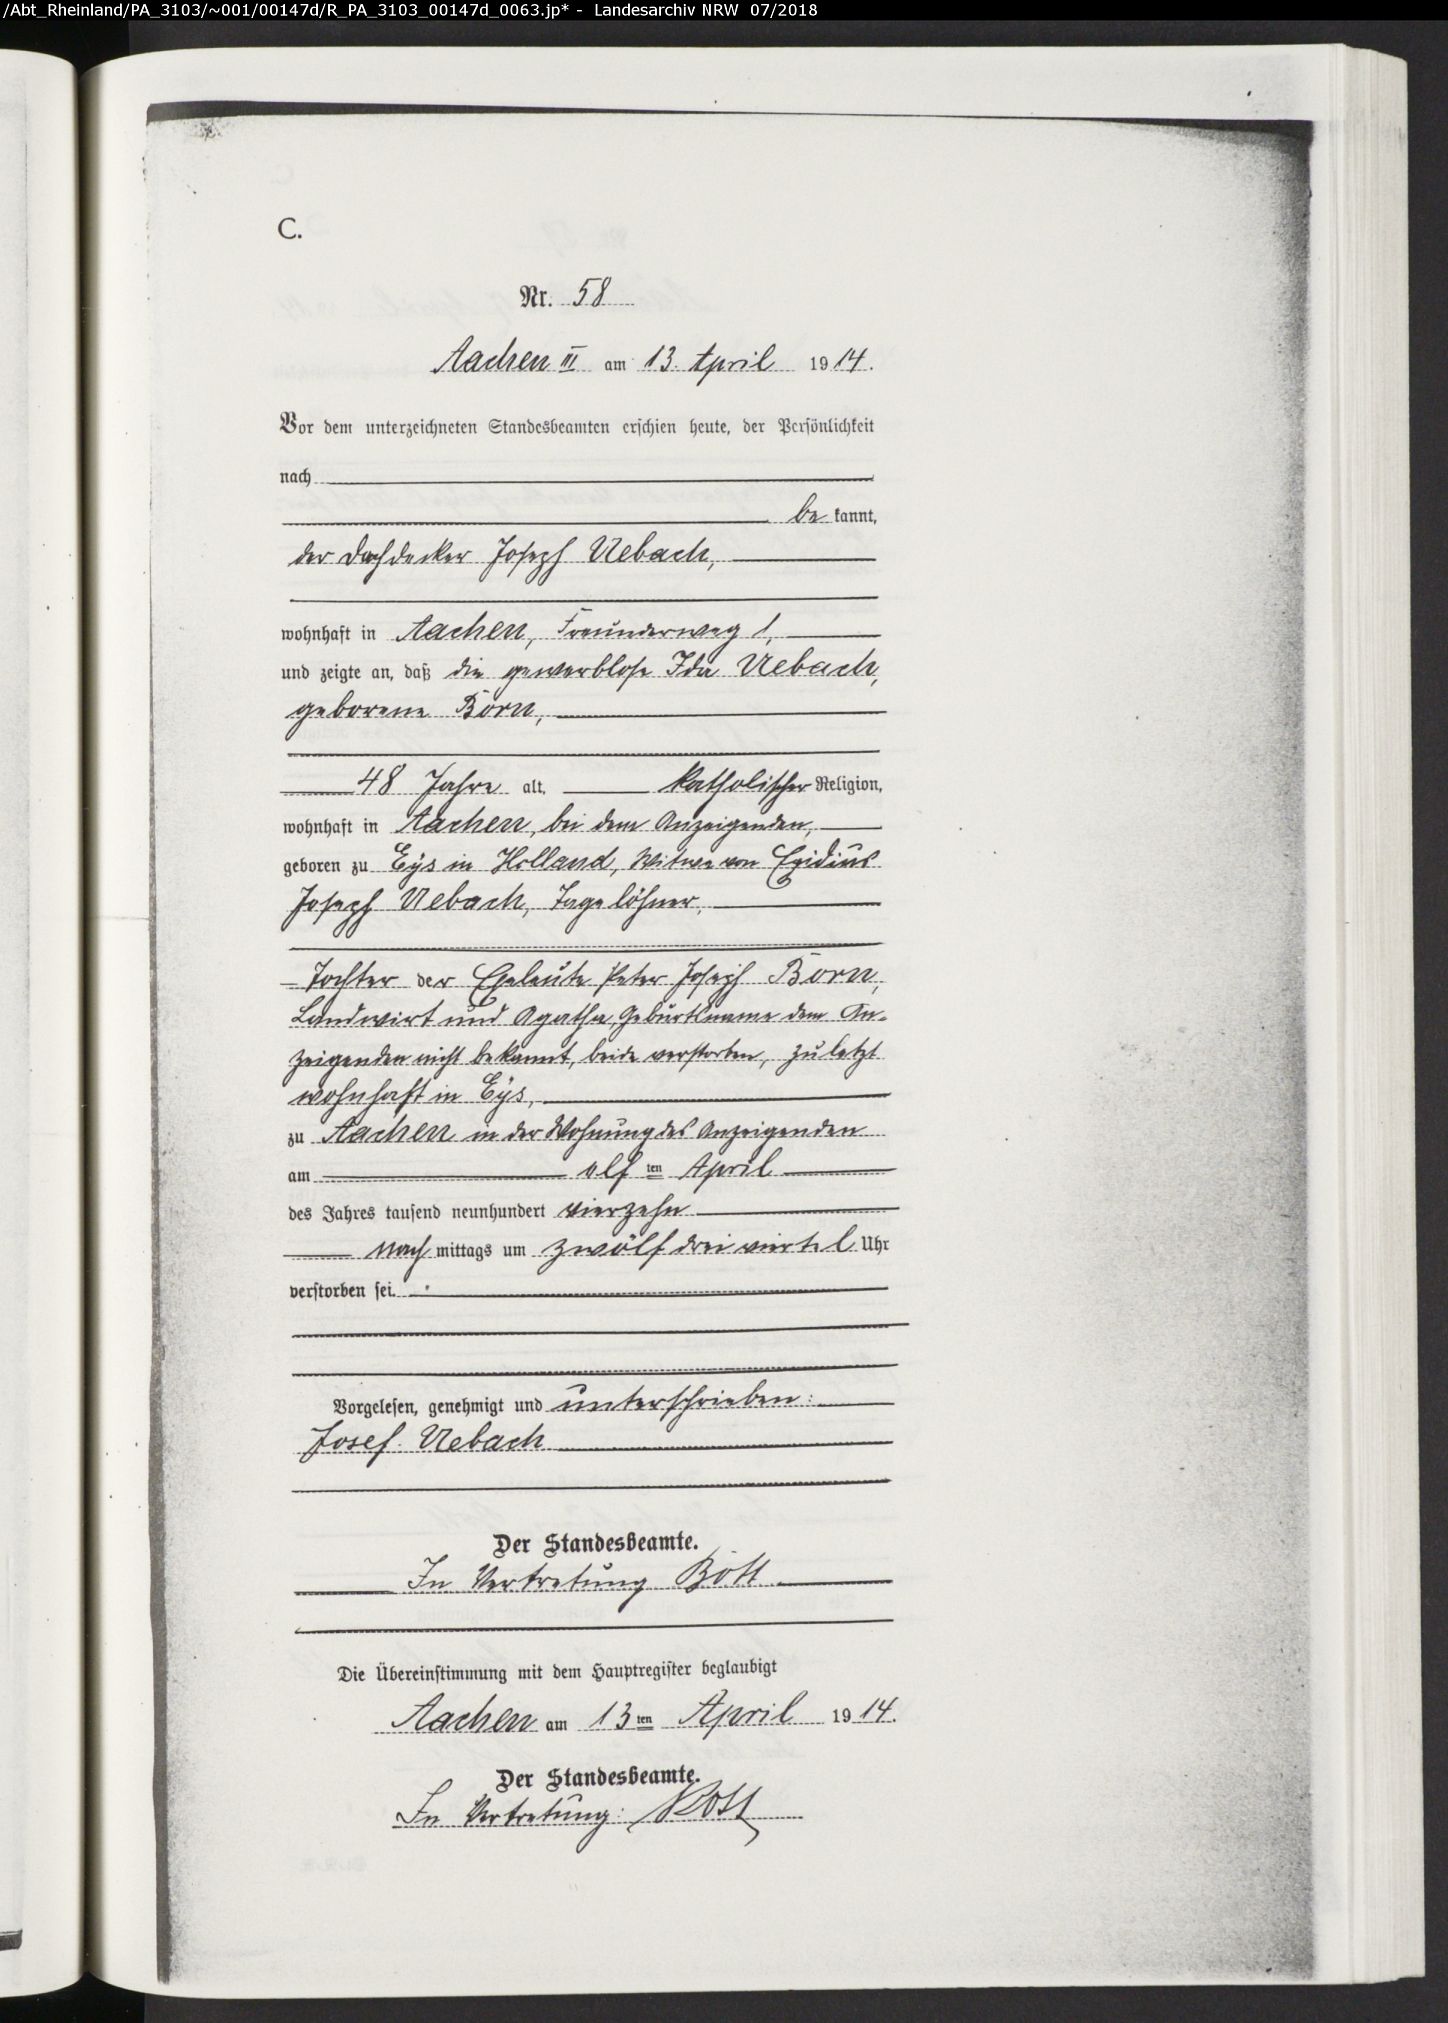 /Abt_Rheinland/PA_3103/~001/00147d/R_PA_3103_00147d_0063.jp* - Landesarchiv NRW 07/2018
C.
Nr. 58
Aachen III am 13. April 1914.
Vor dem unterzeichneten Standesbeamten erschien heute, der Persönlichkeit
nach
be kannt,
der Dachdecker Joseph Uebach,
wohnhaft in Aachen, Freunderweg 1,
und zeigte an, daß die gewerblose Ida Uebach,
geborene Born,
48 Jahre alt, katholischer Religion,
wohnhaft in Aachen, bei dem Anzeigenden,
geboren zu Eys in Holland, Witwe von Egidius
Joseph Uebach, Tagelöhner,
Tochter der Eheleute Peter Joseph Born,
Landwirt und Agatha, Geburtsname dem An-
zeigenden nicht bekannt, beide verstorben, zuletzt
wohnhaft in Eys,
zu Aachen in der Wohnung des Anzeigenden
am elf ten April
des Jahres tausend neunhundert vierzehn
nach mittags um zwölf drei viertel Uhr
verstorben sei.
Vorgelesen, genehmigt und unterschrieben:
Josef Uebach
Der Standesbeamte.
In Vertretung Bott
Die Übereinstimmung mit dem Hauptregister beglaubigt
Aachen am 13ten April 1914.
Der Standesbeamte.
In Vertretung: Bott